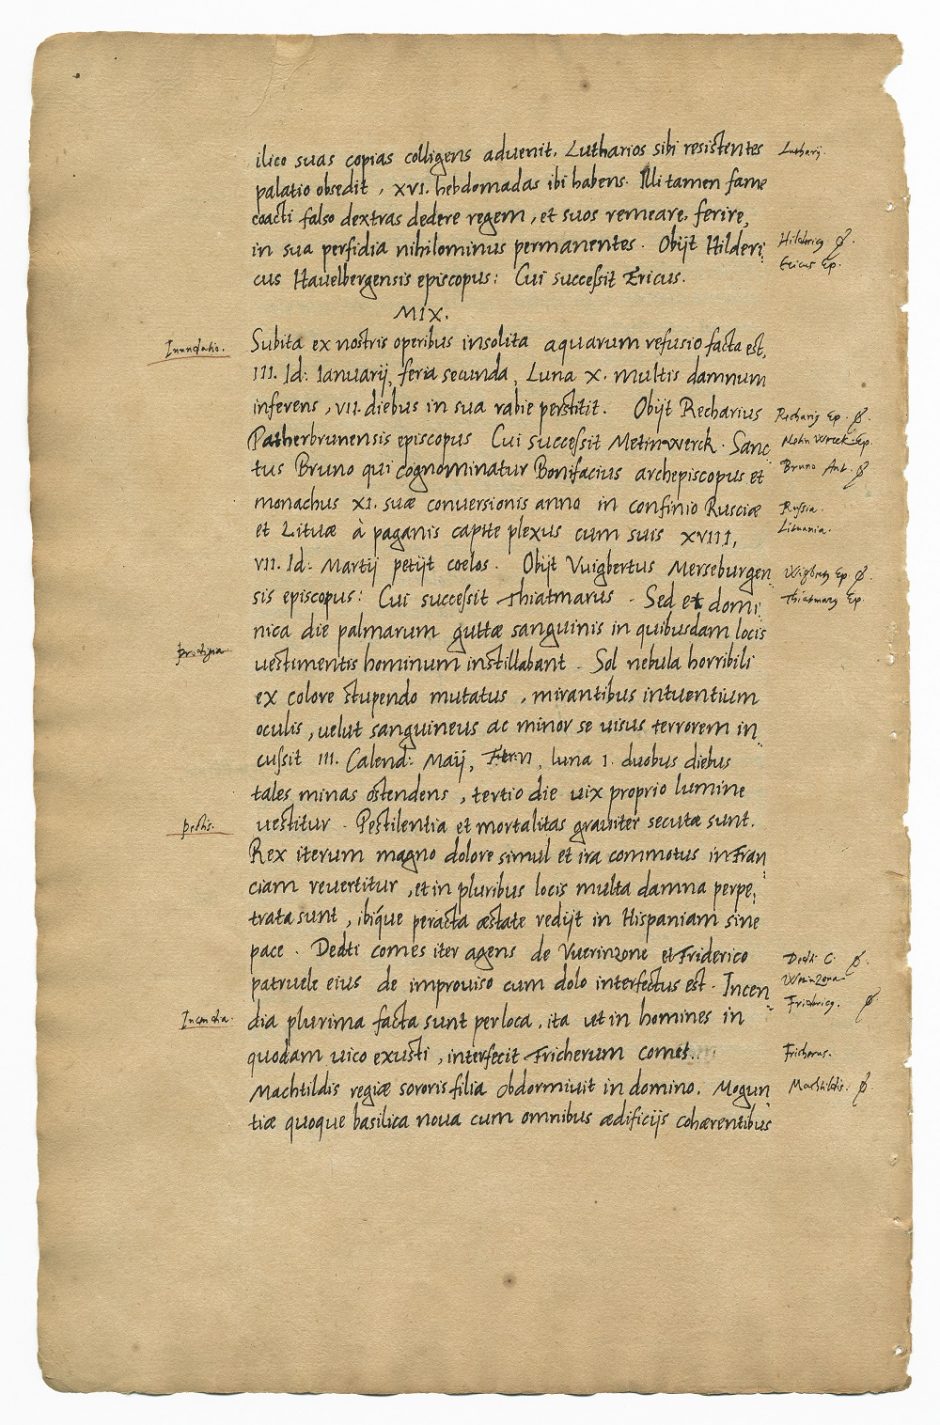 ilico suas copias colligens advenit. Lutharios sibi resistentes
palatio obsedit, XVI. hebdomadas ibi habens. Illi tamen fame
coacti falso dextras dedere regem, et suos remeare, ferire,
in sua perfidia nihilominus permanentes. Obijt Hilderi
cus Hauelbergensis episcopus: Cui successit Ericus.
MIX.
Subita ex nostris operibus insolita aquarum refusio facta est,
III. Id: Ianuarij, feria secunda, Luna X. multis damnum
inferens, VII. diebus in sua rabie perstitit. Obijt Recharius
Patherbrunensis episcopus Cui successit Metinwerck. Sanc
tus Bruno qui cognominatur Bonifacius archepiscopus et
monachus XI. suæ conversionis anno in confinio Rusciæ
et Lituæ à paganis capite plexus cum suis XVIII,
VII. Id: Martij petijt coelos. Obijt Vuigbertus Merseburgen
sis episcopus: Cui successit Thiatmarus. Sed et domi
nica die palmarum guttæ sanguinis in quibusdam locis
uestimentis hominum instillabant. Sol nebula horribili
ex colore stupendo mutatus, mirantibus intuentium
oculis, uelut sanguineus ac minor se uisus terrorem in
cussit III. Calend: Maij, Fer. VI, luna I. duobus diebus
tales minas ostendens, tertio die uix proprio lumine
uestitur. Pestilentia et mortalitas grauiter secutæ sunt.
Rex iterum magno dolore simul et ira commotus in Fran
ciam reuertitur, et in pluribus locis multa damna perpe
trata sunt, ibique peracta æstate redijt in Hispaniam sine
pace. Dedti comes iter agens de Vuerinzone et Friderico
patruele eius de improuiso cum dolo interfectus est. Incen
dia plurima facta sunt per loca, ita ut in homines in
quodam uico exusti, interfecit Fricherum comes.
Machtildis regiæ sororis filia obdormiuit in domino. Mogun
tiæ quoque basilica noua cum omnibus ædificijs cohærentibus
Inundatio.
prodigia
pestis.
Incendia.
Lutharij.
Hildericus
Ericus Ep.
Recharius Ep.
Metinwerck Ep.
Bruno
Russia.
Lituania.
Wigbertus Ep.
Thiatmarus Ep.
Dedti C.
Werinzona
Fridericus.
Fricherus.
Machtildis.